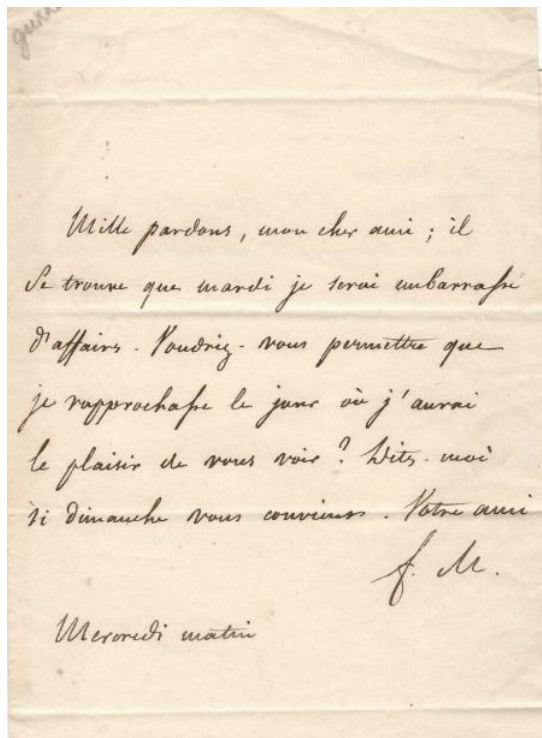 Mille pardons, mon cher ami ; il
se trouve que mardi je serai embarrassé
d'affaires. Voudriez-vous permettre que
je rapprochasse le jour où j'aurai
le plaisir de vous voir ? Dites-moi
si dimanche vous convient. Votre ami
f. M.
Mercredi matin